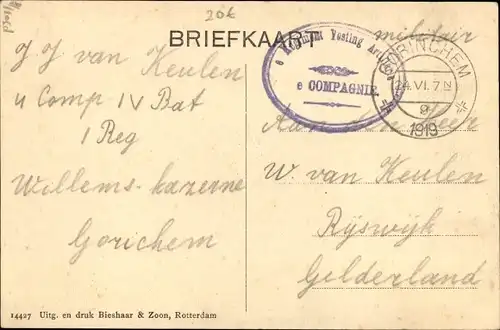 20€
BRIEFKAART
militair
e Regiment Vesting Artillerie
e COMPAGNIE.
GORINCHEM
24.VI. 7-8
1919
J J van Keulen
4 Comp IV Bat
1 Reg
Willems-kazerne
Gorichem
Aan den Heer
W. van Keulen
Ryswyk
Gelderland
14427 Uitg. en druk Bieshaar & Zoon, Rotterdam